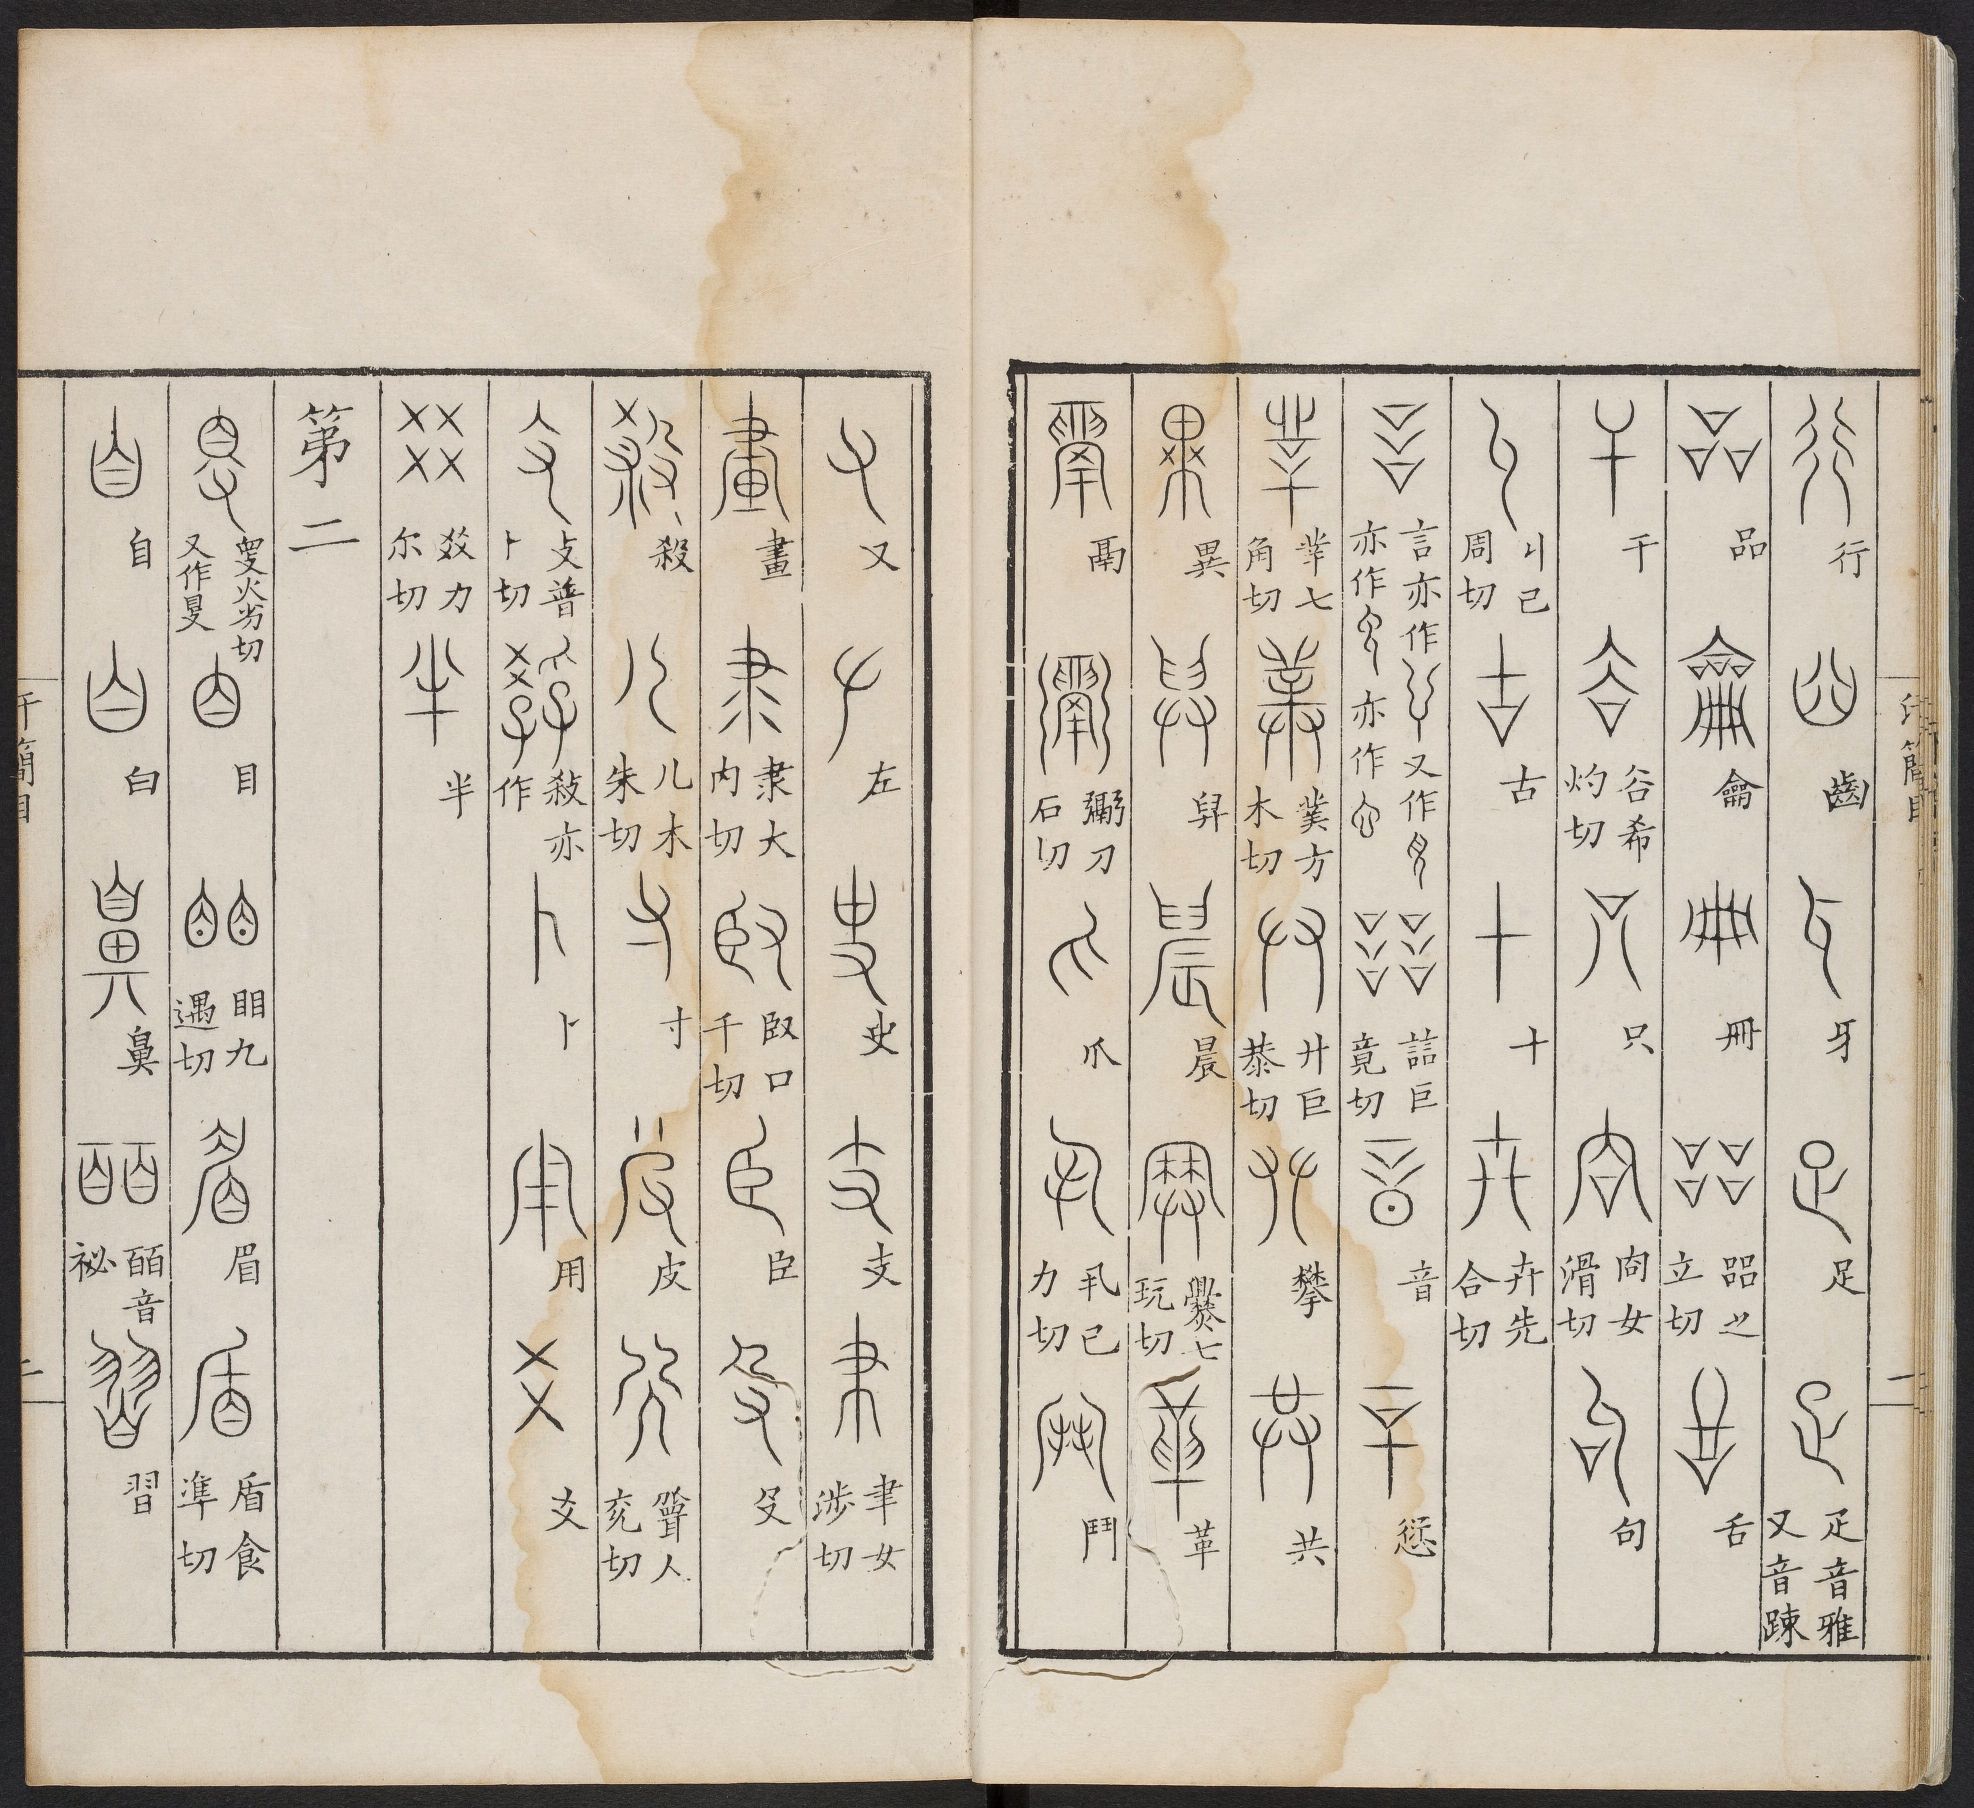 行 齒 牙 足 疋音雅又音踈
品 龠 冊 㗊之立切 舌
干 谷希灼切 只 㕯女滑切 句
丩己周切 古 十 卉先合切
言亦作 又作 亦作 亦作 誩巨竟切 音 䇂愆
丵七角切 菐方木切 廾巨恭切 攀 共
異 舁 晨 爨七玩切 革
鬲 䰜刀石切 爪 丮己力切 鬥
又 左 史 支 𦘒女涉切
畫 隶大內切 臤口千切 臣 殳
殺 几木朱切 寸 皮 㼱人兖切
攴普卜切 敎亦作 卜 用 爻
㸚力尔切 半
第二
𡕥火劣切又作𥄎 目 䀠九遇切 眉 盾食準切
自 白 鼻 皕音祕 習